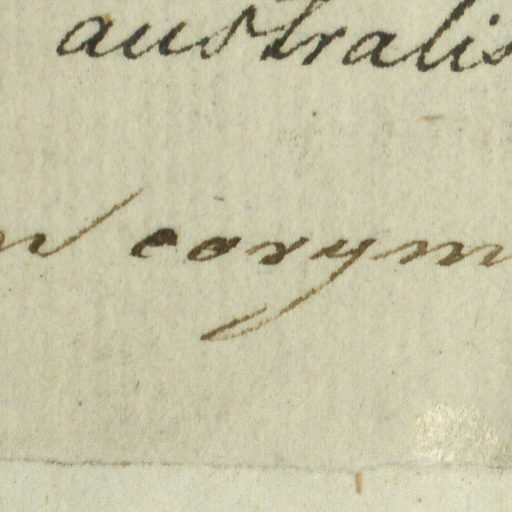 australis
corym